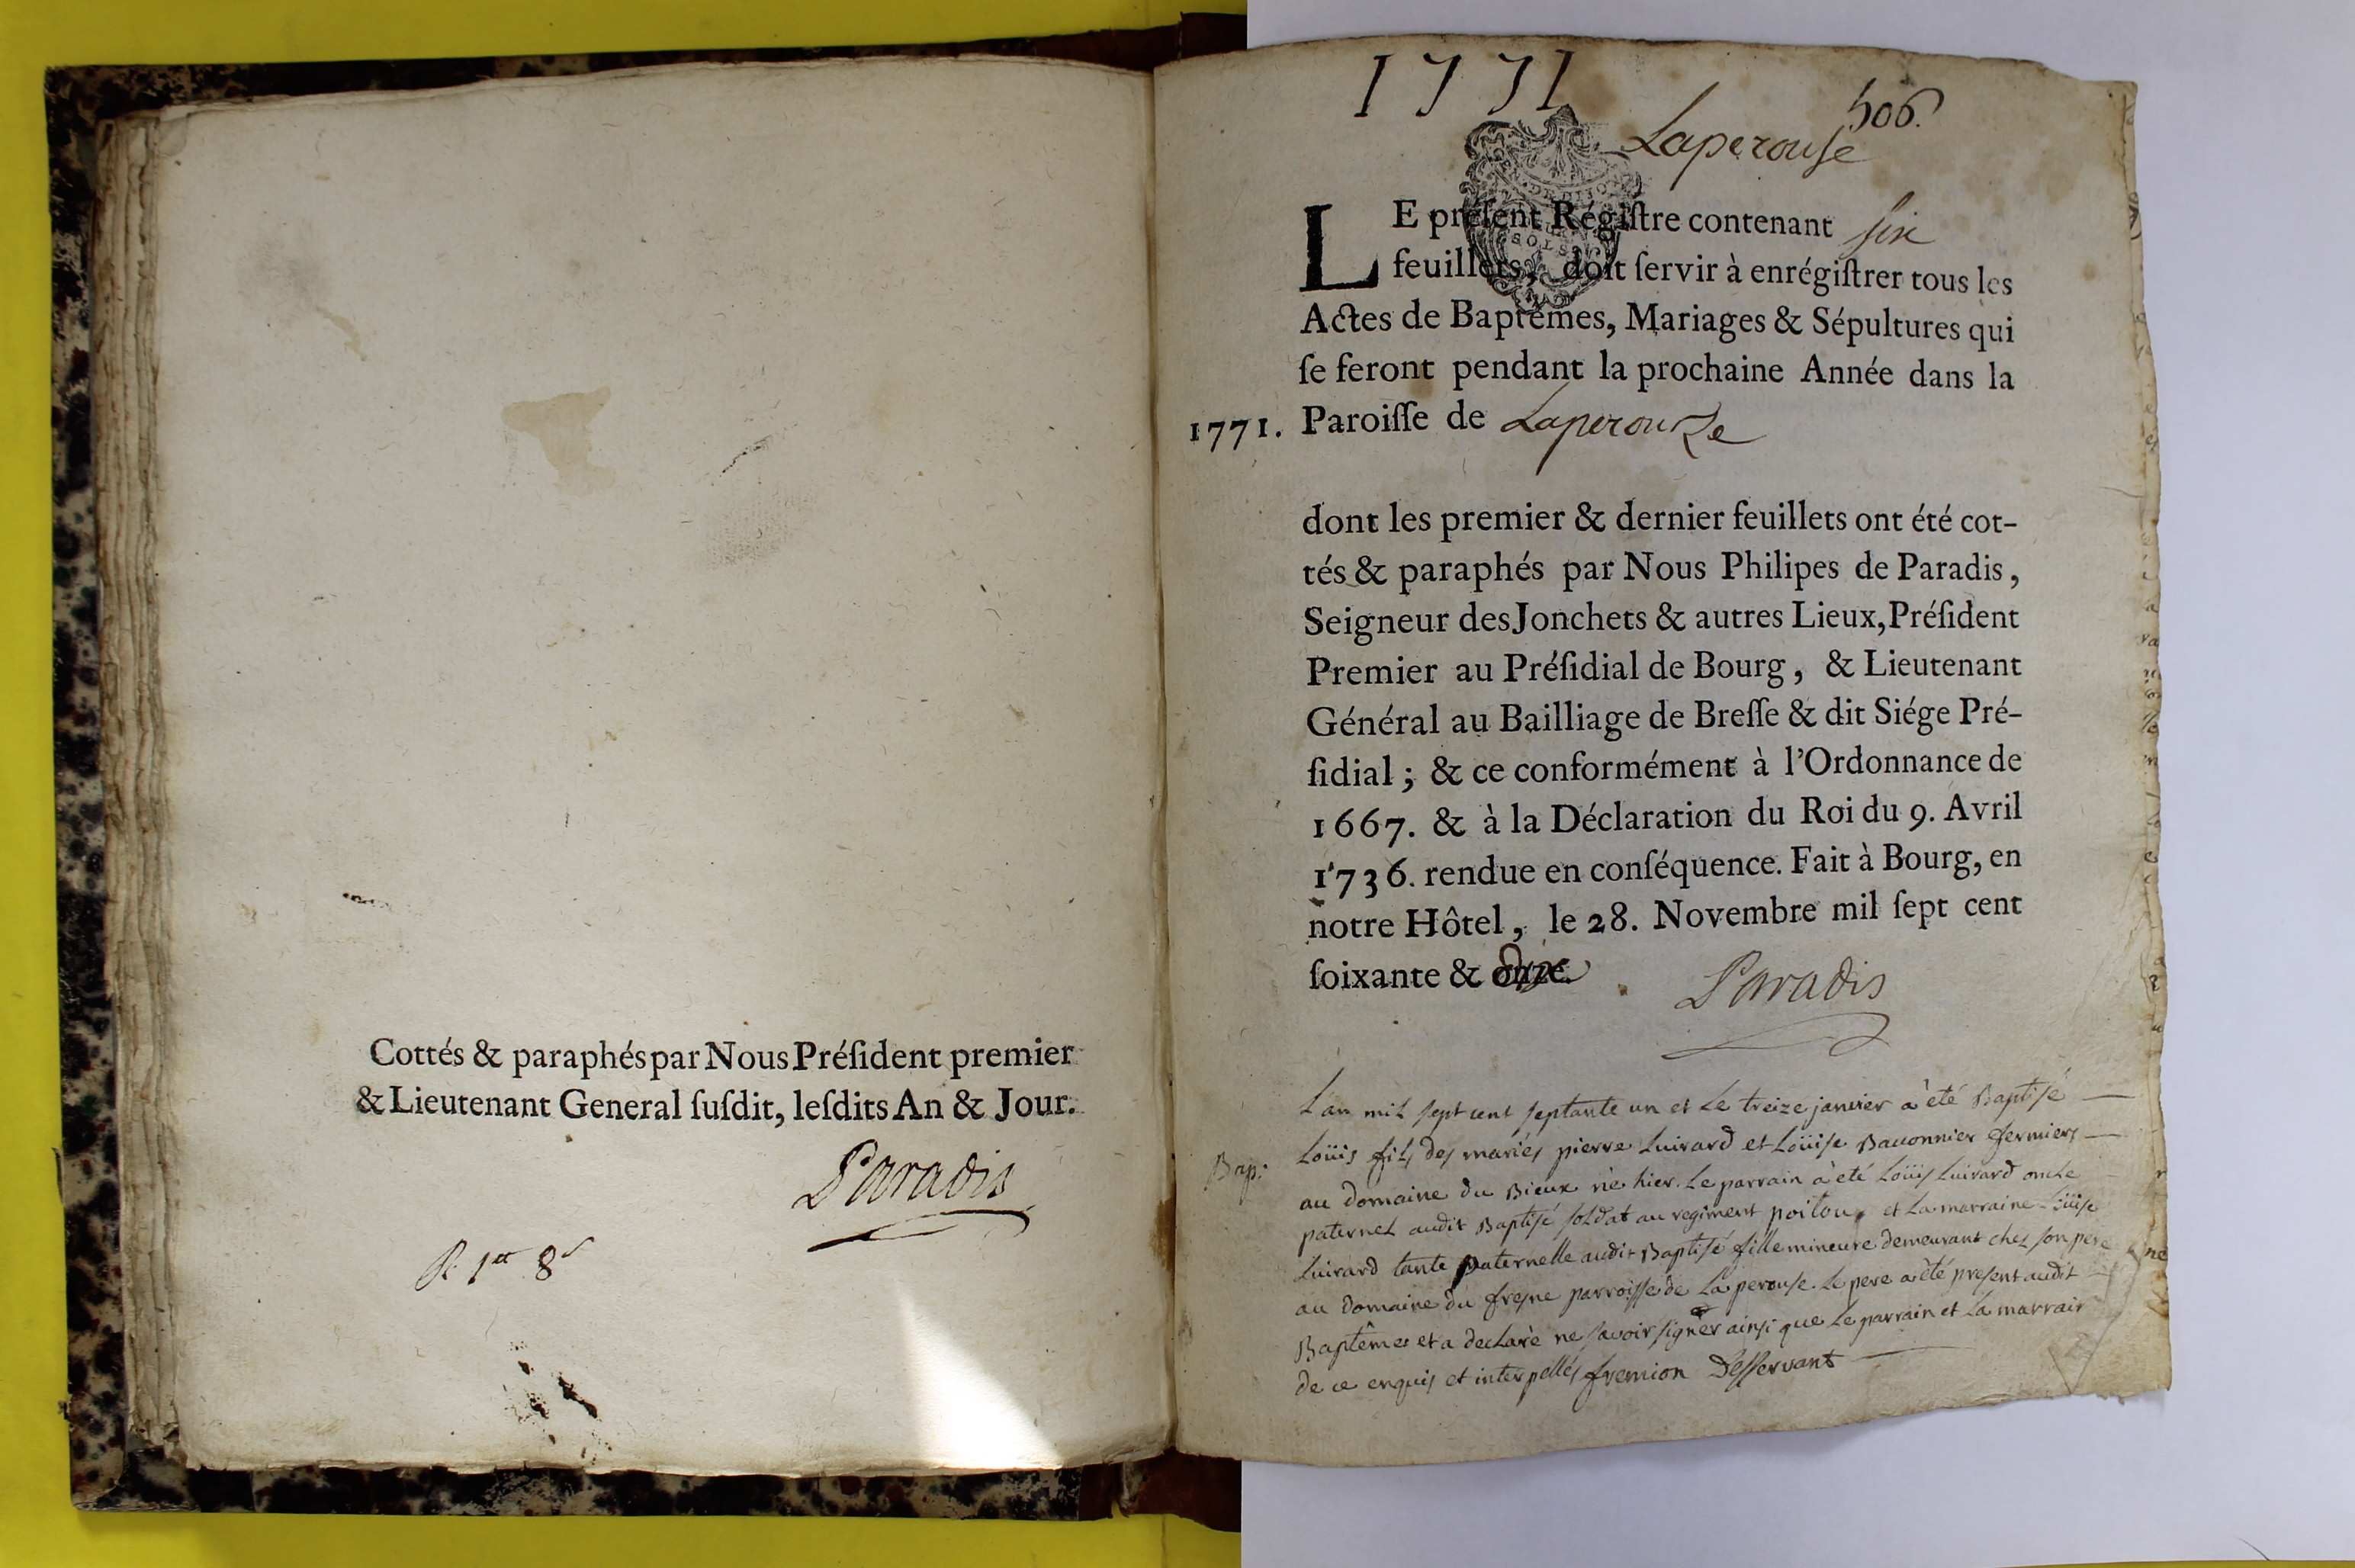 Cottés & paraphés par Nous Préſident premier
& Lieutenant General ſuſdit, leſdits An & Jour.
Paradis
1771
506.
Laperouse
LE préſent Régiſtre contenant six
feuillets, doit ſervir à enrégiſtrer tous les
Actes de Baptêmes, Mariages & Sépultures qui
ſe feront pendant la prochaine Année dans la
1771. Paroiſſe de Laperouze
dont les premier & dernier feuillets ont été cot-
tés & paraphés par Nous Philipes de Paradis,
Seigneur des Jonchets & autres Lieux, Préſident
Premier au Préſidial de Bourg, & Lieutenant
Général au Bailliage de Breſſe & dit Siége Pré-
ſidial ; & ce conformément à l'Ordonnance de
1667. & à la Déclaration du Roi du 9. Avril
1736. rendue en conſéquence. Fait à Bourg, en
notre Hôtel, le 28. Novembre mil ſept cent
ſoixante & dix
Paradis
L'an mil sept cent septante un et le treize janvier a été Baptisé
Bap: Loüis fils des mariés pierre Luirard et Loüise Bauonnier fermiers
au domaine du Bieux né hier. Le parrain à été Loüis Luirard oncle
paternel audit Baptisé soldat au regiment poitou, et la marraine Loüise
Luirard tante paternelle audit Baptisé fille mineure demeurant chez son pere
au domaine du fresne parroisse de Laperouse. Le pere a été present audit
Baptême et a declaré ne savoir signer ainsi que le parrain et la marrain
de ce enquis et interpellés fremion Desservant